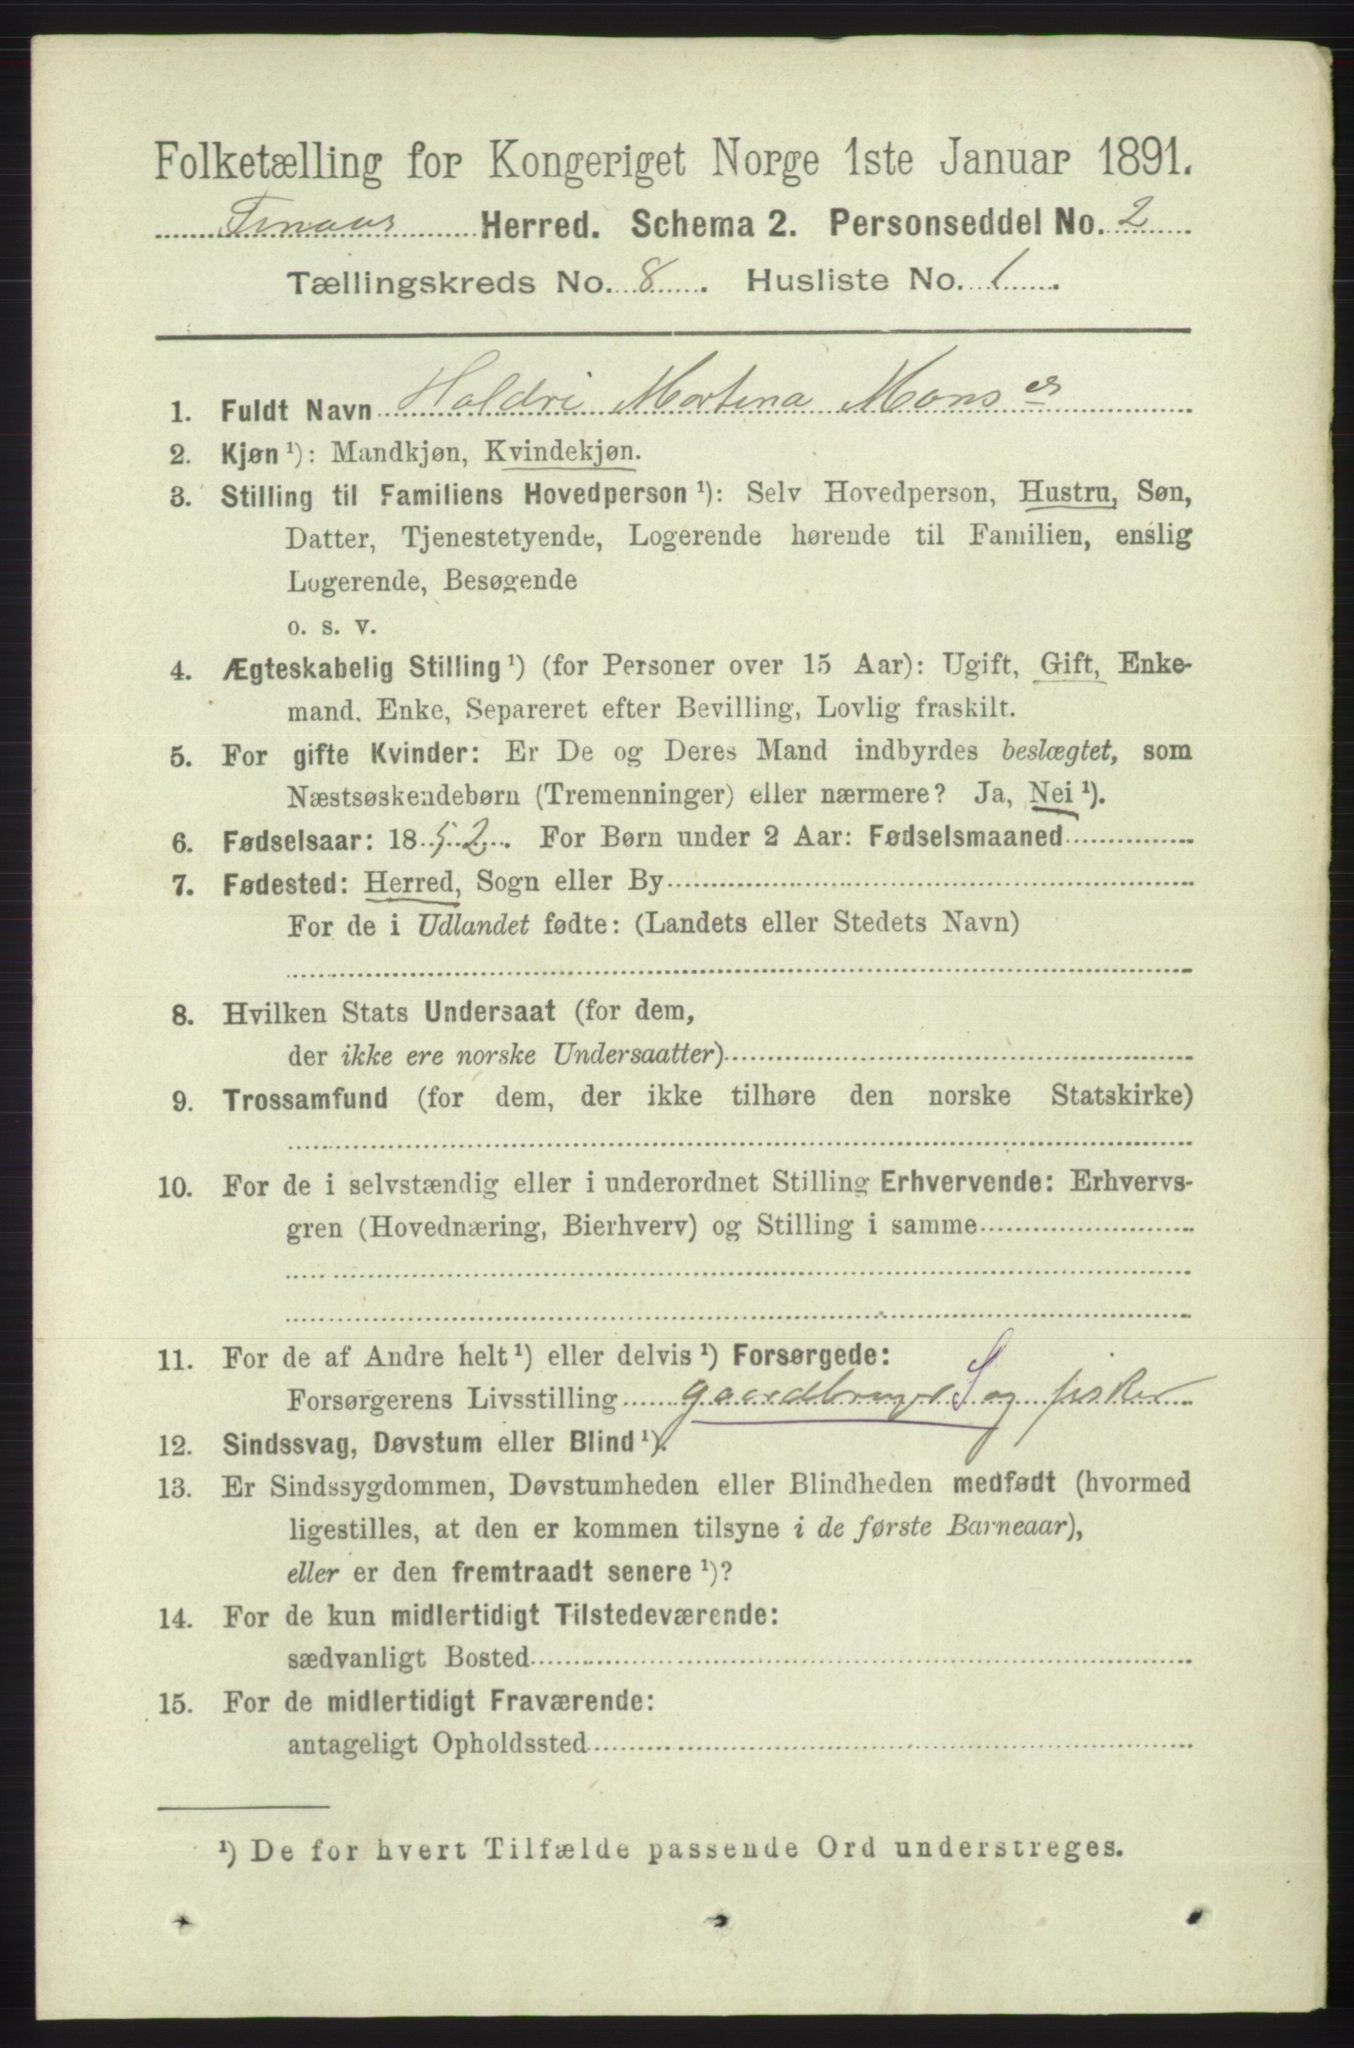 Folketælling for Kongeriget Norge 1ste Januar 1891.
Finaas Herred. Schema 2. Personseddel No. 2
Tællingskreds No. 8. Husliste No. 1.
1. Fuldt Navn Holdri Martina Monser
2. Kjøn ¹): Mandkjøn, Kvindekjøn.
3. Stilling til Familiens Hovedperson ¹): Selv Hovedperson, Hustru, Søn,
Datter, Tjenestetyende, Logerende hørende til Familien, enslig
Logerende, Besøgende
o. s. v.
4. Ægteskabelig Stilling ¹) (for Personer over 15 Aar): Ugift, Gift, Enke-
mand, Enke, Separeret efter Bevilling, Lovlig fraskilt.
5. For gifte Kvinder: Er De og Deres Mand indbyrdes beslægtet, som
Næstsøskendebørn (Tremenninger) eller nærmere? Ja, Nei ¹).
6. Fødselsaar: 1852. For Børn under 2 Aar: Fødselsmaaned
7. Fødested: Herred, Sogn eller By
For de i Udlandet fødte: (Landets eller Stedets Navn)
8. Hvilken Stats Undersaat (for dem,
der ikke ere norske Undersaatter)
9. Trossamfund (for dem, der ikke tilhøre den norske Statskirke)
10. For de i selvstændig eller i underordnet Stilling Erhvervende: Erhvervs-
gren (Hovednæring, Bierhverv) og Stilling i samme
11. For de af Andre helt ¹) eller delvis ¹) Forsørgede:
Forsørgerens Livsstilling gaardbruger S og fisker
12. Sindssvag, Døvstum eller Blind ¹).
13. Er Sindssygdommen, Døvstumheden eller Blindheden medfødt (hvormed
ligestilles, at den er kommen tilsyne i de første Barneaar),
eller er den fremtraadt senere ¹)?
14. For de kun midlertidigt Tilstedeværende:
sædvanligt Bosted
15. For de midlertidigt Fraværende:
antageligt Opholdssted
¹) De for hvert Tilfælde passende Ord understreges.